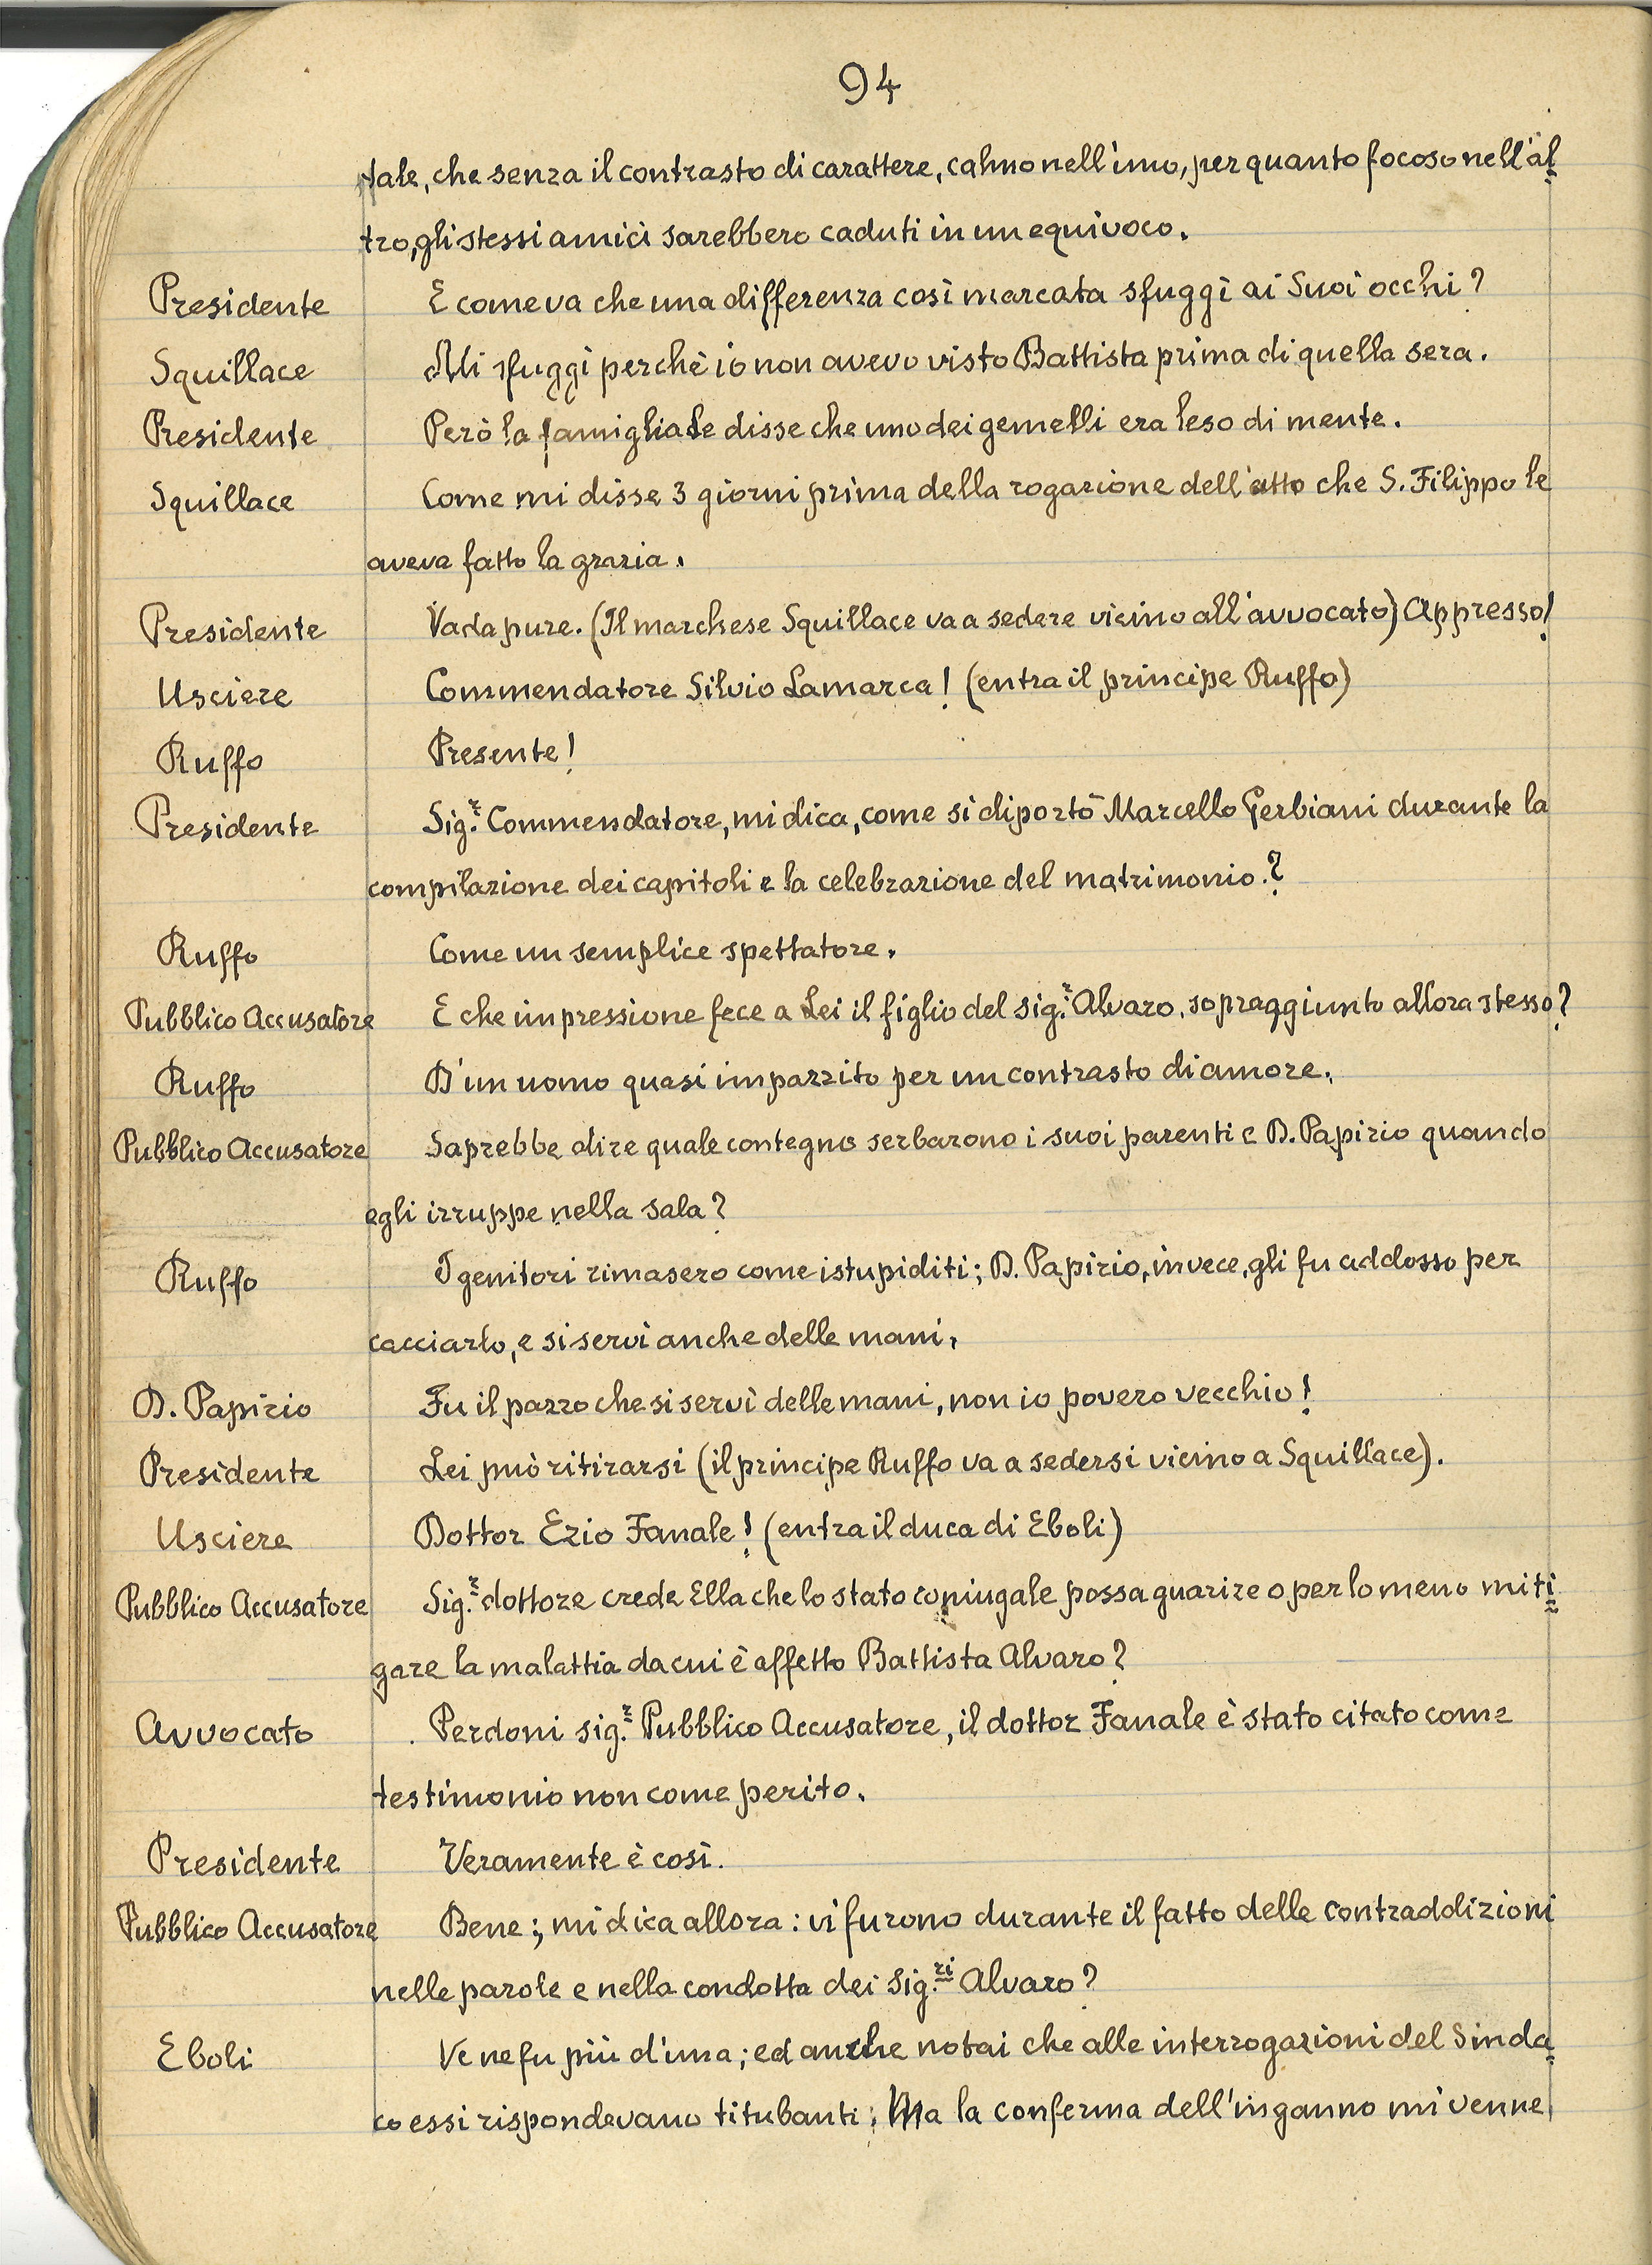 94
tale, che senza il contrasto di carattere, calmo nell'uno, per quanto focoso nell'al=
tro, gli stessi amici sarebbero caduti in un equivoco.
Presidente E come va che una differenza così marcata sfuggì ai Suoi occhi?
Squillace Mi sfuggì perchè io non avevo visto Battista prima di quella sera.
Presidente Però la famiglia le disse che uno dei gemelli era leso di mente.
Squillace Come mi disse 3 giorni prima della rogazione dell'atto che S. Filippo le
aveva fatto la grazia.
Presidente Vada pure. (Il marchese Squillace va a sedere vicino all'avvocato) Appresso!
Usciere Commendatore Silvio Lamarca! (entra il principe Ruffo)
Ruffo Presente!
Presidente Sig.r Commendatore, mi dica, come si diportò Marcello Gerbiani durante la
compilazione dei capitoli e la celebrazione del matrimonio.?
Ruffo Come un semplice spettatore.
Pubblico Accusatore E che impressione fece a Lei il figlio del sig.r Alvaro, sopraggiunto allora stesso?
Ruffo D'un uomo quasi impazzito per un contrasto di amore.
Pubblico Accusatore Saprebbe dire quale contegno serbarono i suoi parenti e D. Papirio quando
egli irruppe nella sala?
Ruffo I genitori rimasero come istupiditi; D. Papirio, invece, gli fu addosso per
cacciarlo, e si servì anche delle mani.
D. Papirio Fu il pazzo che si servì delle mani, non io povero vecchio!
Presidente Lei può ritirarsi (il principe Ruffo va a sedersi vicino a Squillace).
Usciere Dottor Ezio Fanale! (entra il duca di Eboli)
Pubblico Accusatore Sig.r dottore crede Ella che lo stato coniugale possa guarire o per lo meno miti=
gare la malattia da cui è affetto Battista Alvaro?
Avvocato Perdoni sig.r Pubblico Accusatore, il dottor Fanale è stato citato come
testimonio non come perito.
Presidente Veramente è così.
Pubblico Accusatore Bene; mi dica allora: vi furono durante il fatto delle contraddizioni
nelle parole e nella condotta dei Sig.ri Alvaro?
Eboli Ve ne fu più d'una; ed anche notai che alle interrogazioni del Sinda=
co essi rispondevano titubanti; Ma la conferma dell'inganno mi venne